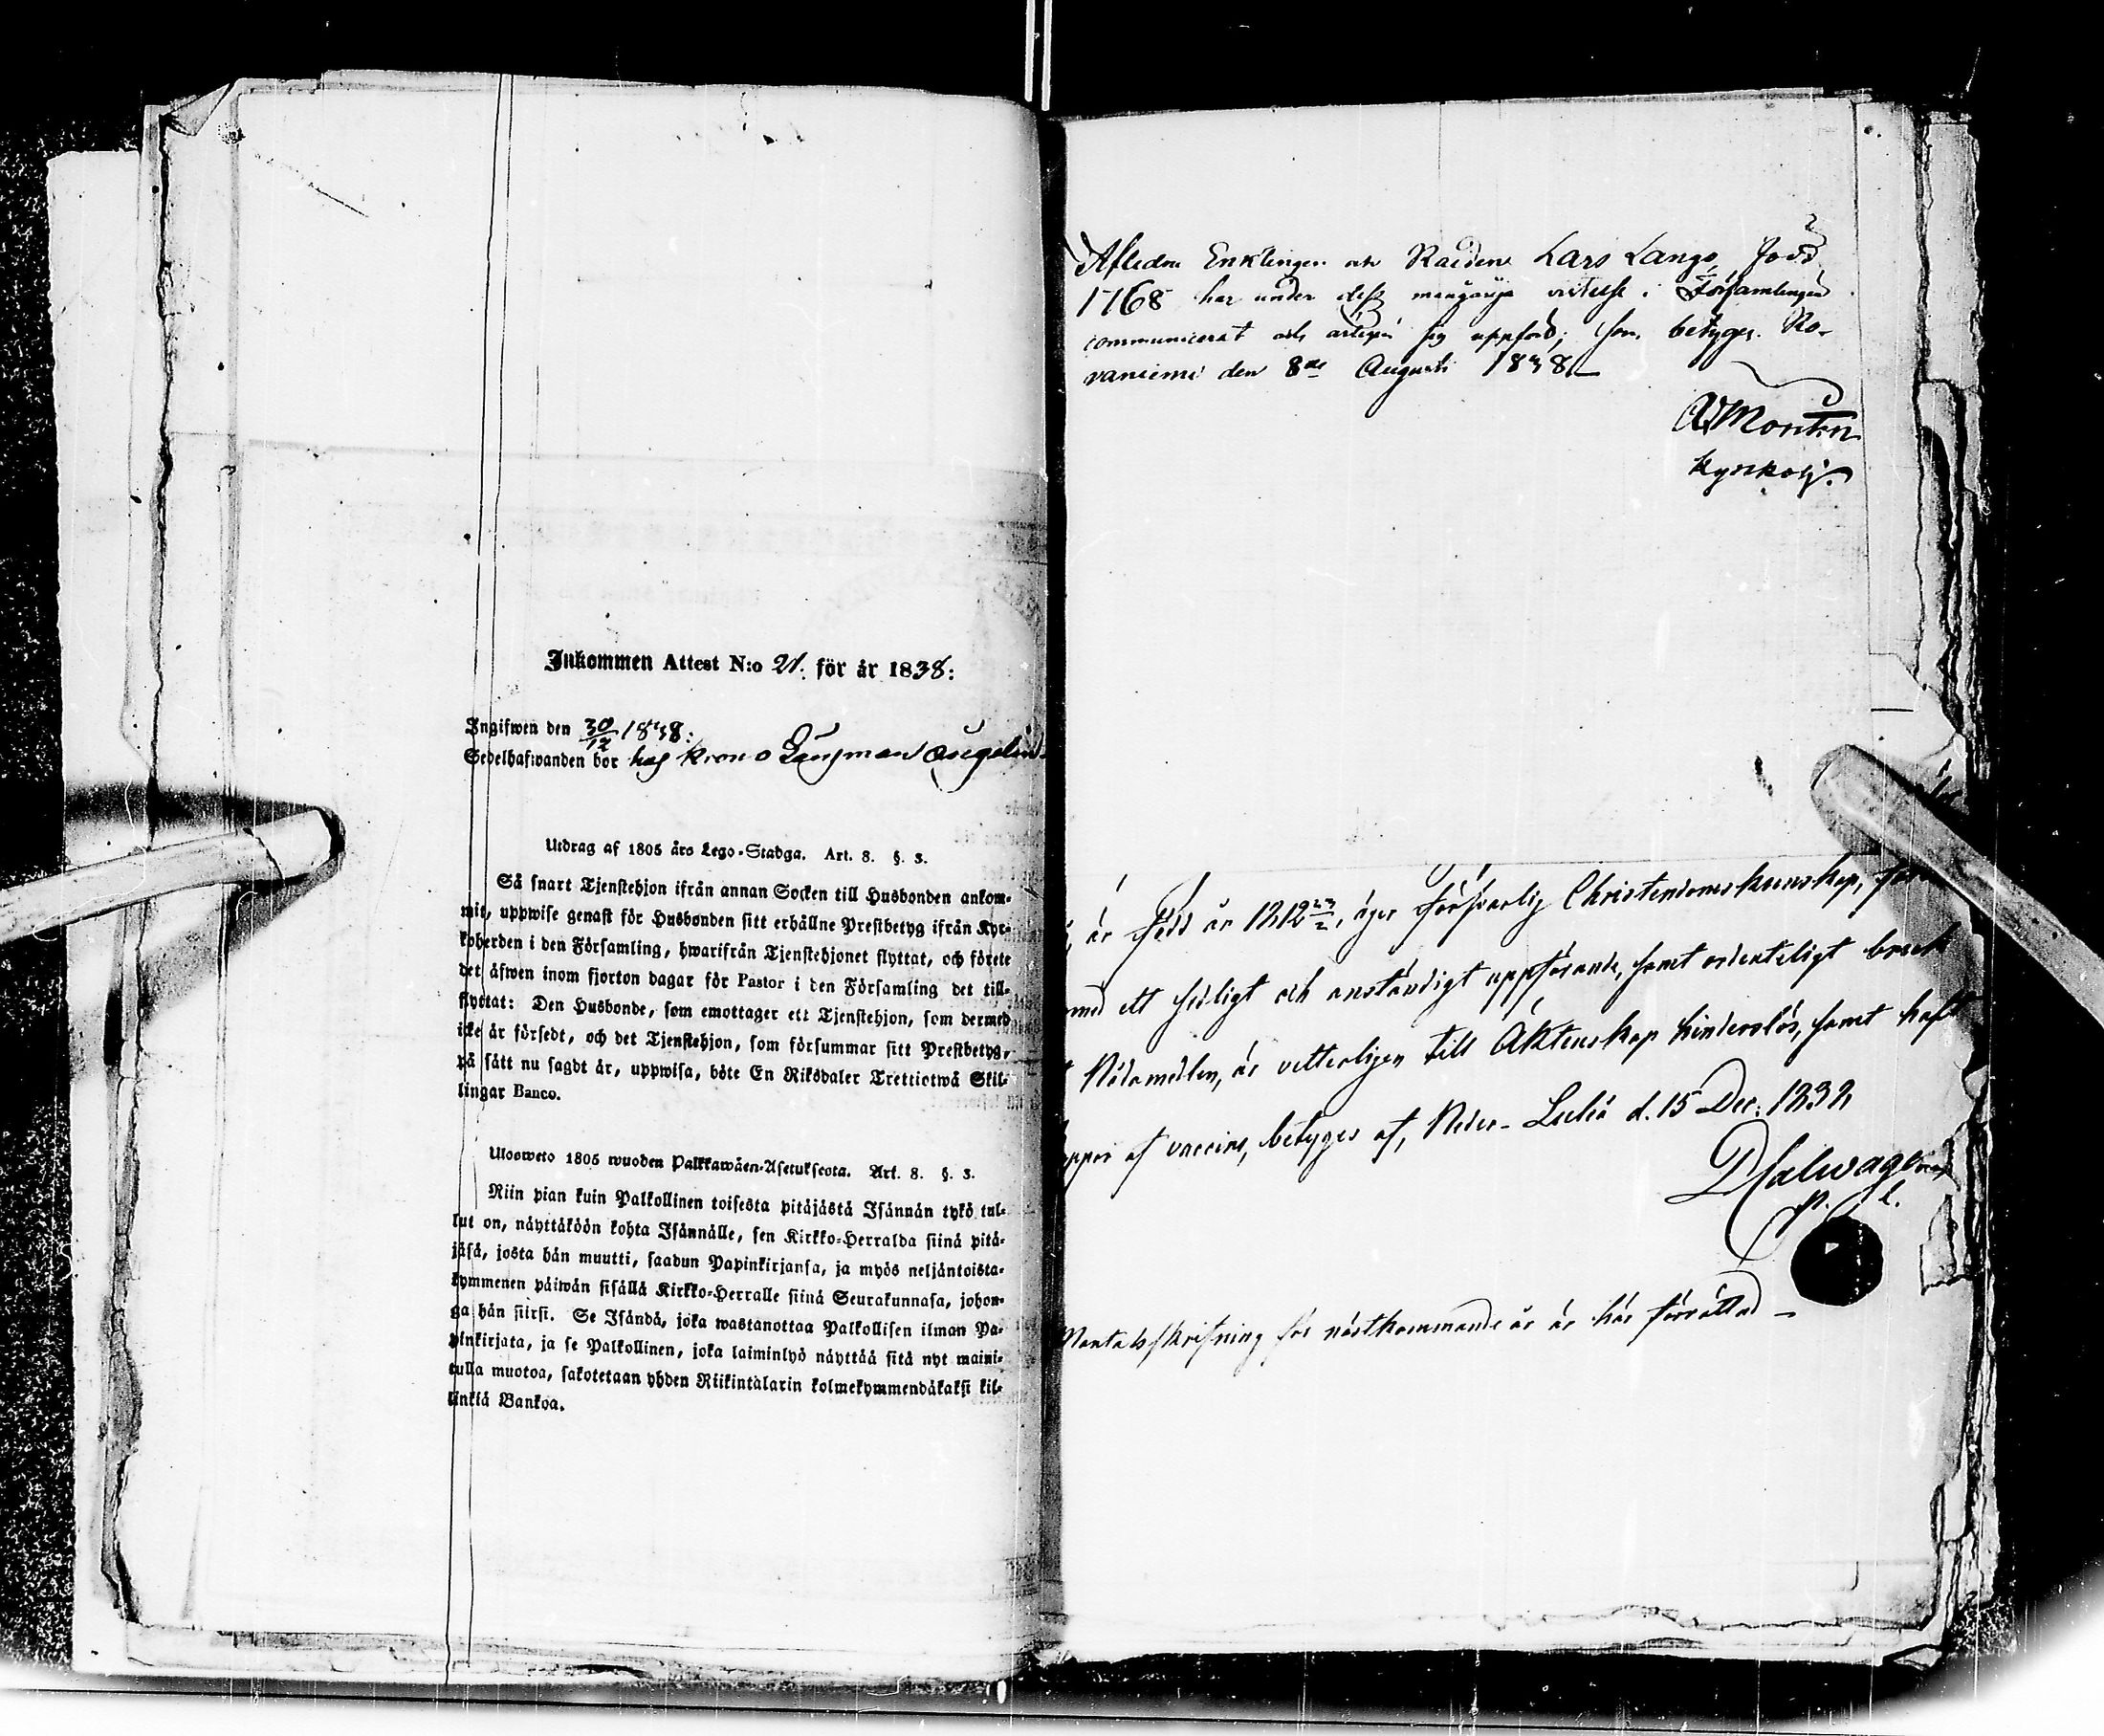 Inkommen Attest N:o 21. för år 1838:
Ingifwen den 30/12 1838:
Sedelhafwanden bor hos Krono Länsman Angelin
Utdrag af 1805 års Lego-Stadga. Art. 8. §. 3.
Så snart Tjenstehjon ifrån annan Socken till Husbonden ankom-
mit, uppwise genast för Husbonden sitt erhållne Prestbetyg ifrån Kyr-
koherden i den Församling, hwarifrån Tjenstehjonet flyttat, och förete
det äfwen inom fjorton dagar för Pastor i den Församling det till-
flyttat: Den Husbonde, som emottager ett Tjenstehjon, som dermed
icke är försedt, och det Tjenstehjon, som försummar sitt Prestbetyg,
på sätt nu sagdt är, uppwisa, böte En Riksdaler Trettiotwå Skil-
lingar Banco.
Ulosweto 1805 wuoden Palkkawäen-Asetuksesta. Art. 8. §. 3.
Niin pian kuin Palkollinen toisesta pitäjästä Isännän tykö tul-
lut on, näyttäköön kohta Isännälle, sen Kirkko-Herralda siinä pitä-
jäsä, josta hän muutti, saadun Papinkirjansa, ja myös neljäntoista-
kymmenen päiwän sisällä Kirkko-Herralle siinä Seurakunnasa, johon-
ga hän siirsi. Se Isändä, joka wastanottaa Palkollisen ilman Pa-
pinkirjata, ja se Palkollinen, joka laiminlyö näyttää sitä nyt maini-
tulla muotoa, sakotetaan yhden Riikintalarin kolmekymmendäkaksi kil-
linkiä Bankoa.
Afledne Enklingen och Lars Lango, född
1768 har under dess mångåriga vistelse i Församlingen
communicerat och sig uppförd; som betygar. Ro-
vaniemi den 8de Augusti 1838.
Montin
Kyrkoh.
är född år 1812 23/2, äger försvarlig Christendomskunskap,
med ett sedligt och anständigt uppförande, samt ordenteligt
Nådamedlen, är vetterligen till Äktenskap hinderslös, samt haft
af vaccine, betyges af, Neder-Luleå d. 15 Dec. 1832
p. l.
Mantalsskrifning för nästkommande år är här förrättad —